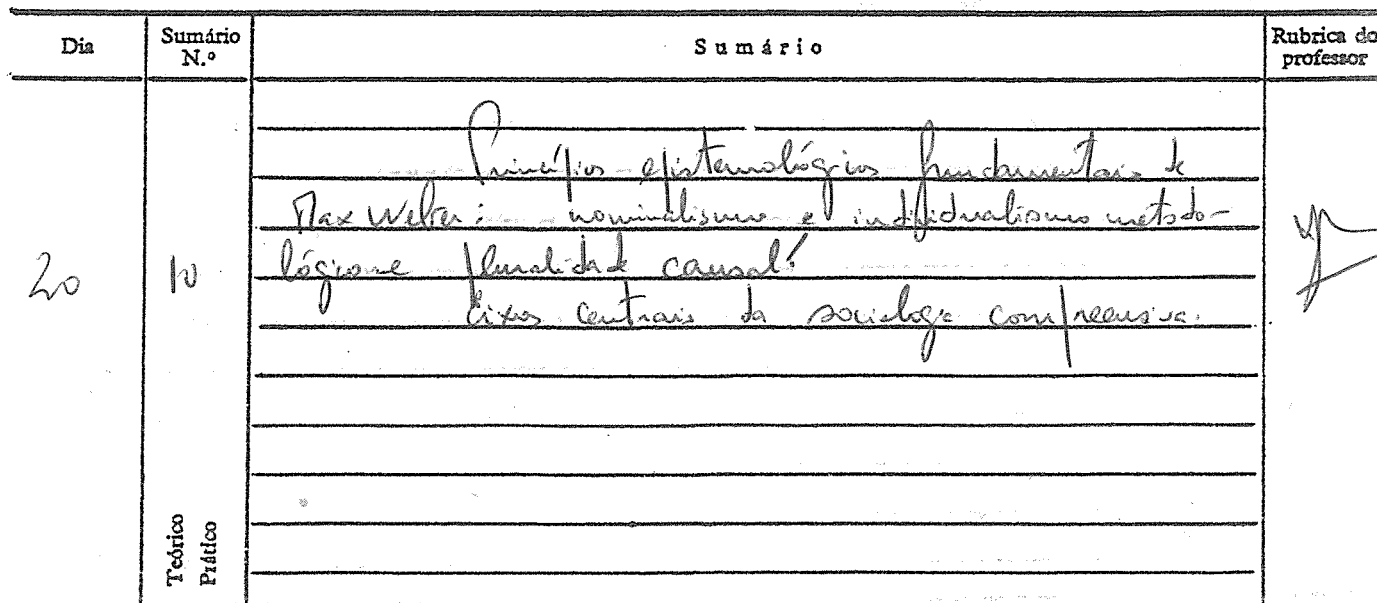 Dia
Sumário N.º
Sumário
Rubrica do professor
Princípios epistemológicos fundamentais de
Max Weber: nominalismo e individualismo metodo-
lógico e pluralidade causal.
Eixos centrais da sociologia compreensiva.
20
10
Teórico
Prático